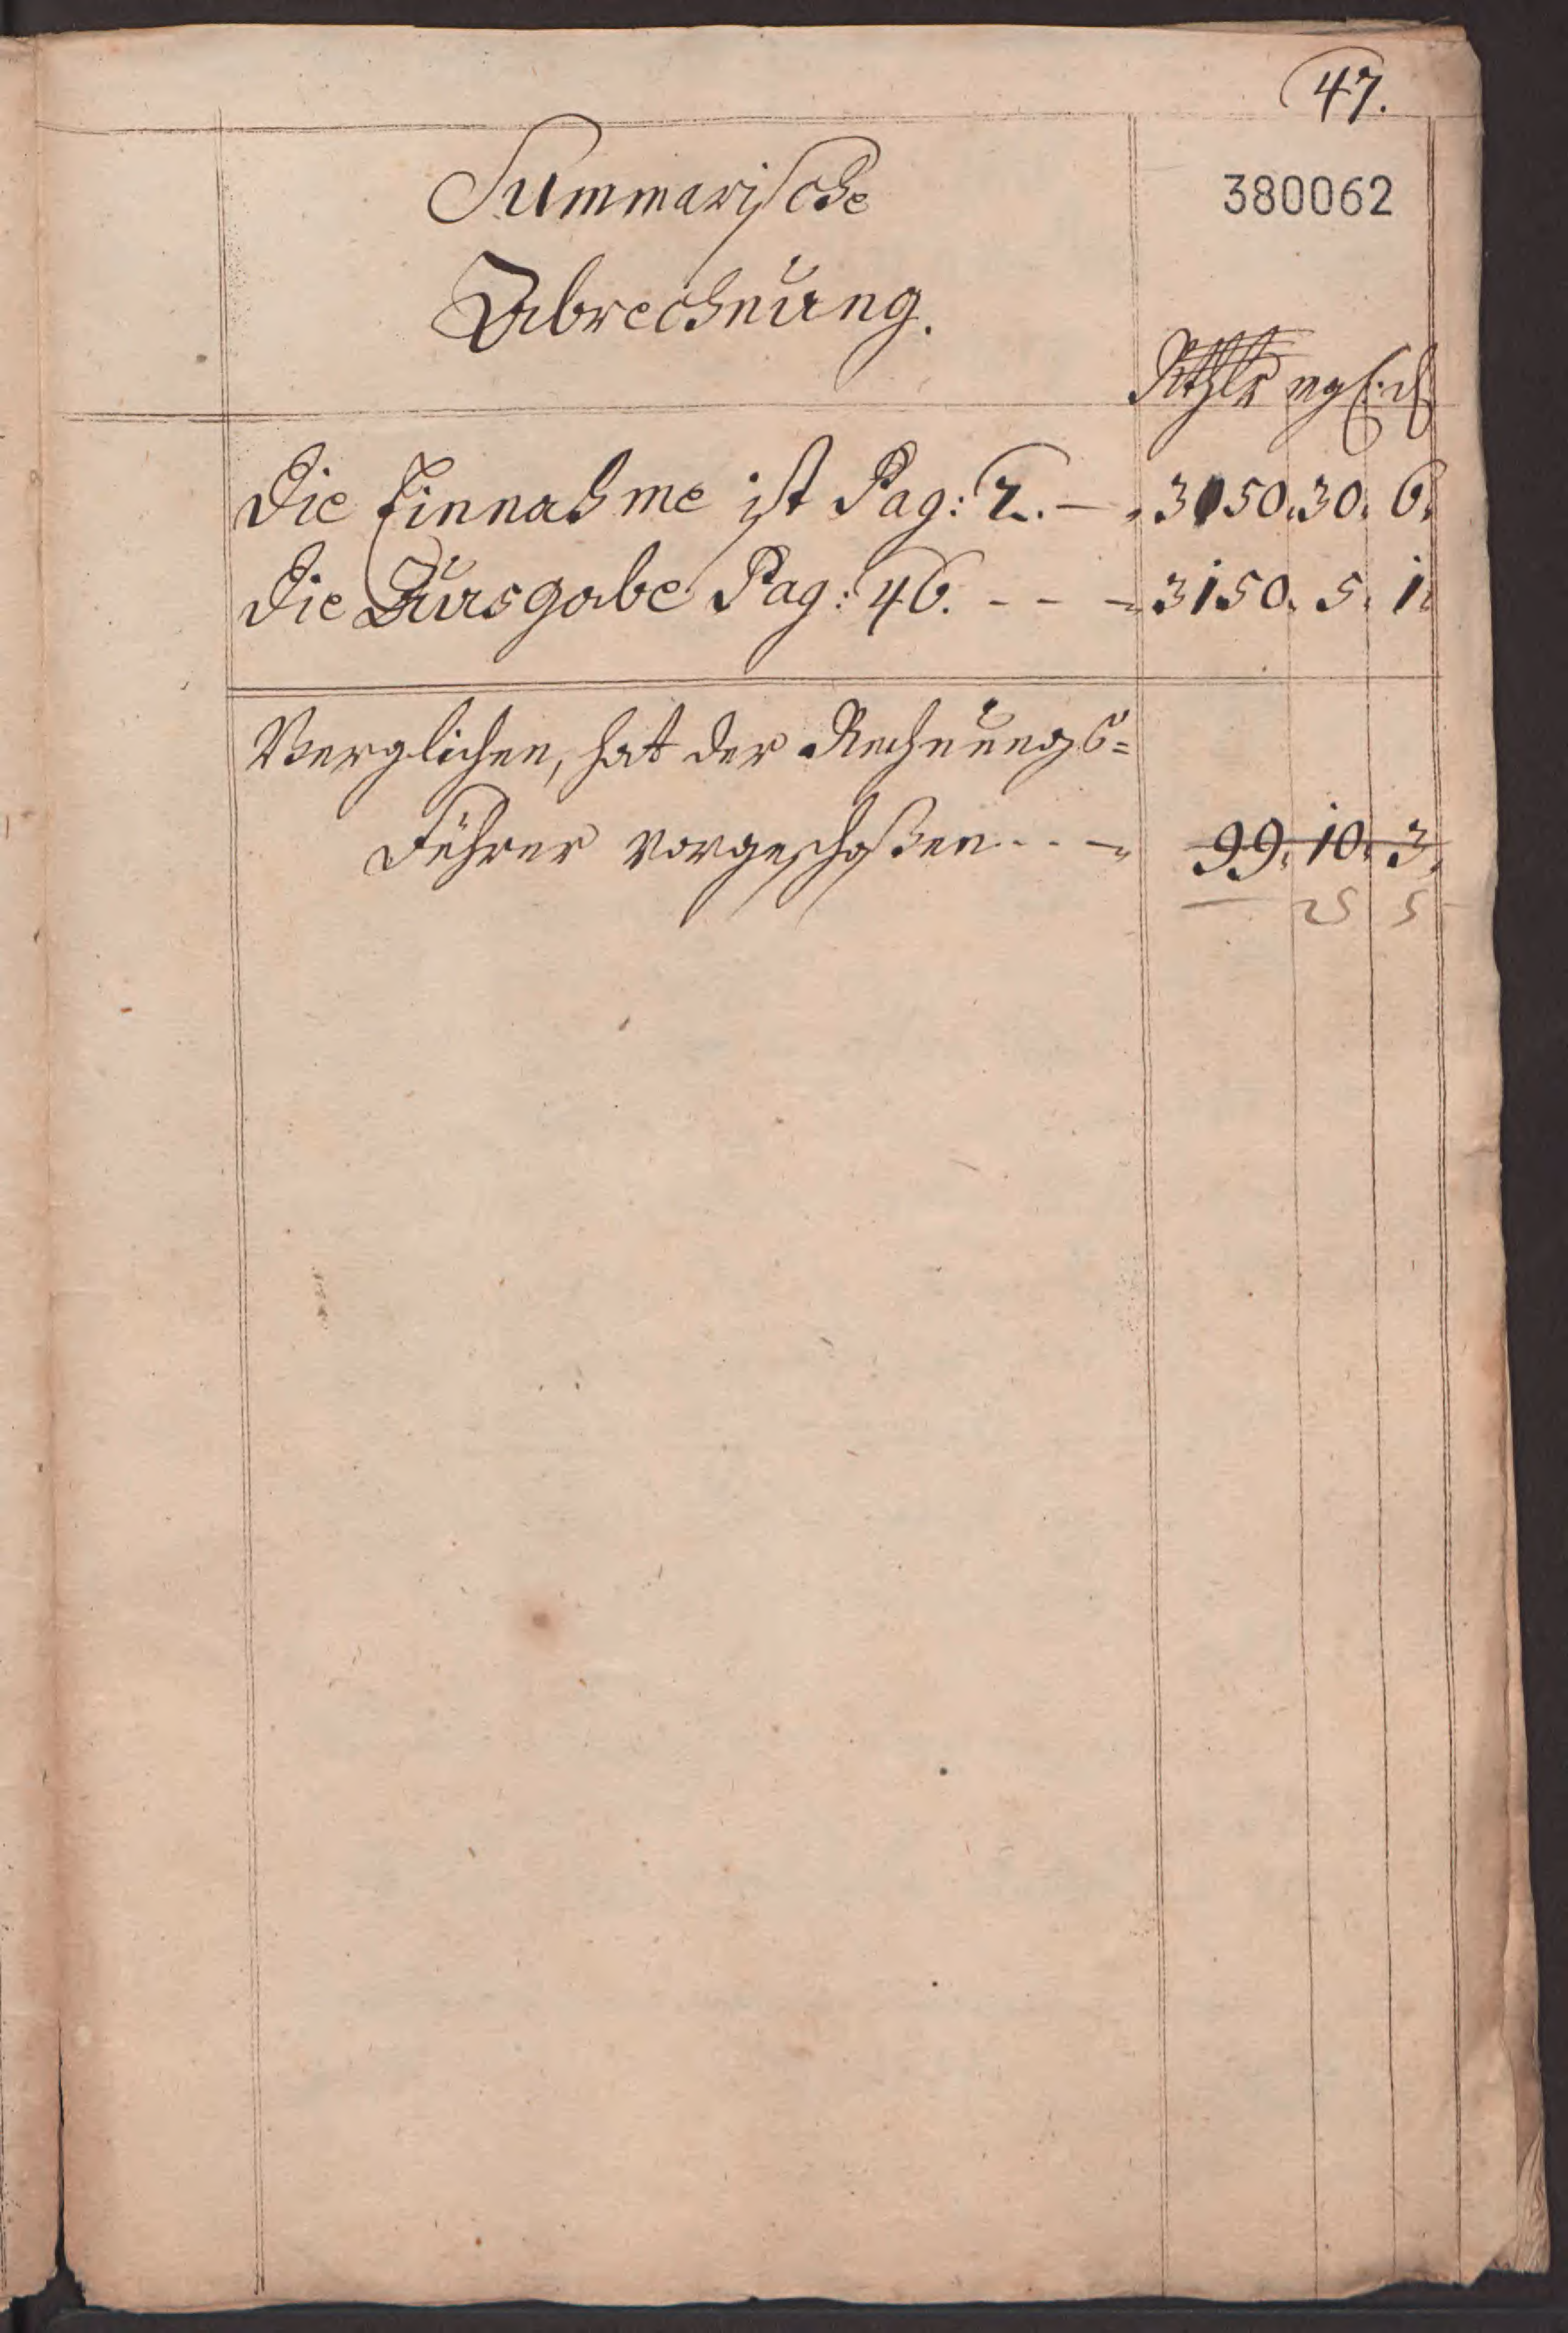 47.
380062
Summarische
Abrechnung.
Rthlr mgl. d
Die Einnahme ist Pag: 2. — 3150. 30. 6.
Die Ausgabe Pag: 46. - - - 3150. 5. 1.
Verglichen, hat der Rechnungs=
Führer vorgeschoßen - - - 99. 10. 3.
— 25 5